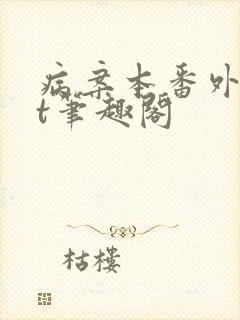 病案本番外
t笔趣阁
枯樓